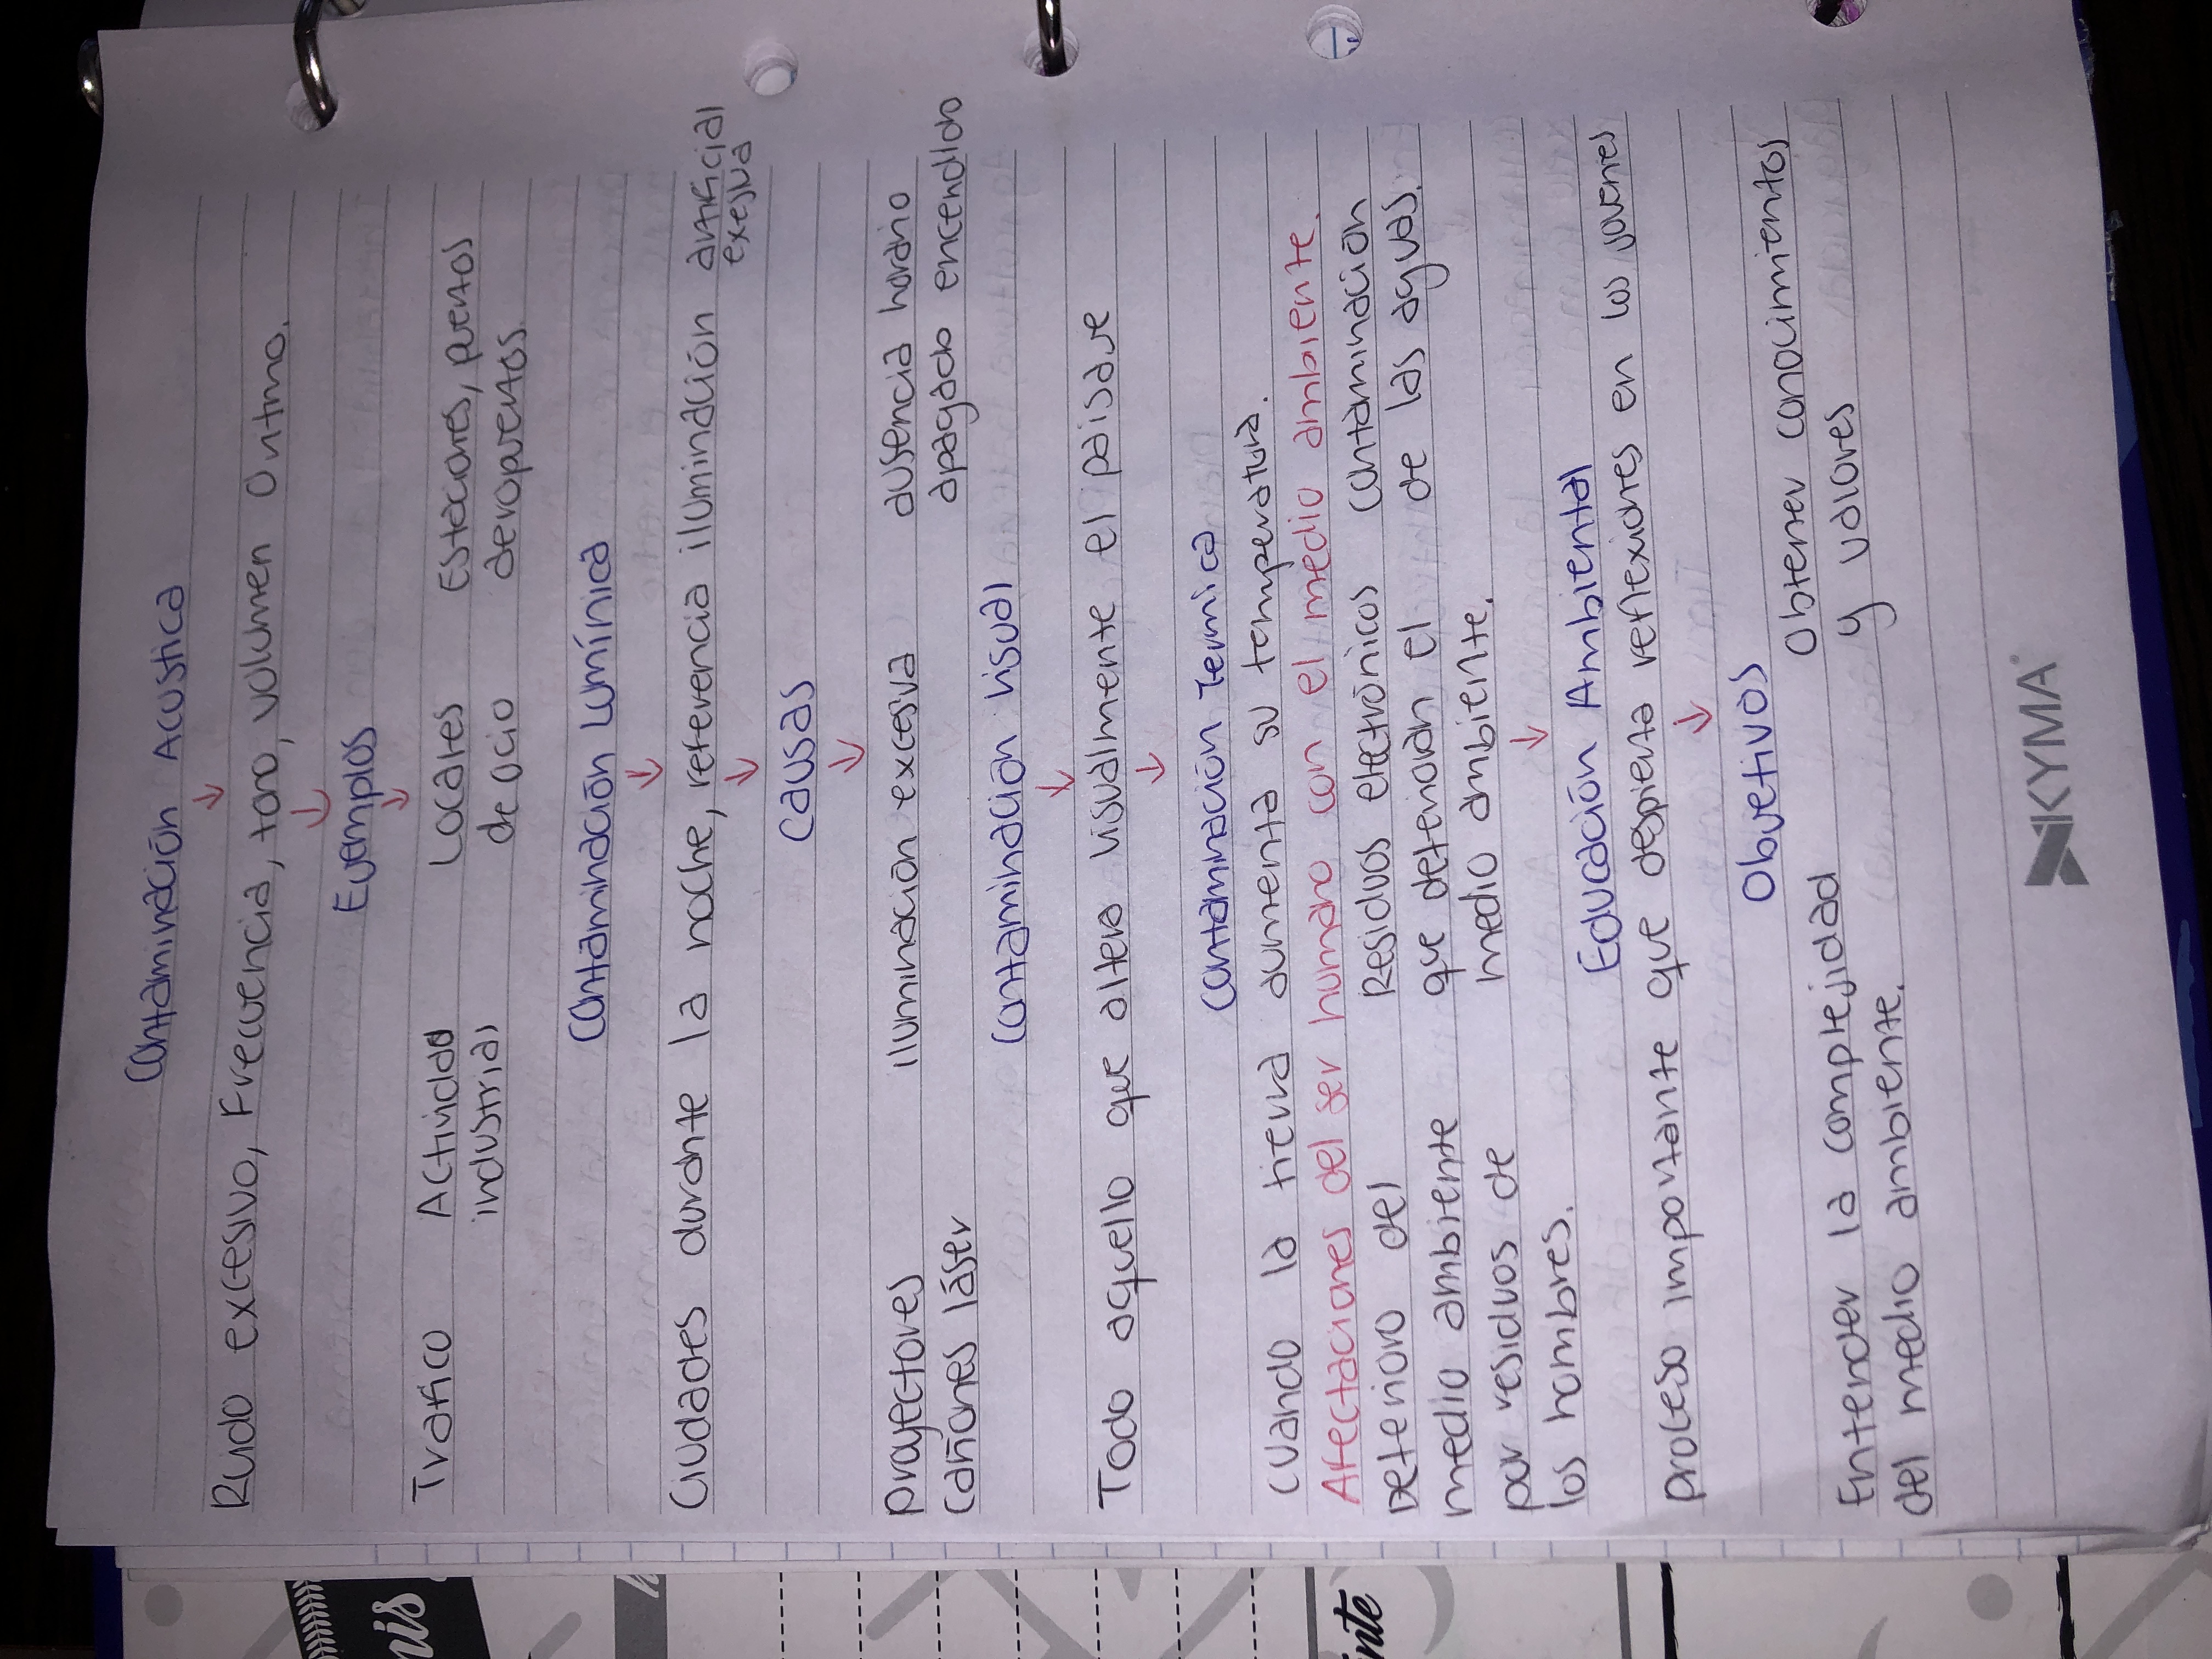 Contaminación Acustica
Ruido excesivo, Frecuencia, tono, volumen O ritmo.
Evemplos
Trafico Actividad Locales Estaciones, puertos
industrial de ocio aeropuertos.
Contaminación Lumínica
Ciudades durante la noche, referencia iluminación artificial
exesiva
Causas
proyectores iluminación excesiva ausencia horario
cañones láser apagado encendido
Contaminación visual
Todo aquello que altera visualmente el paisave
Contaminación Termica
Cuando la tierra aumenta su temperatura.
Afectaciones del ser humano con el medio ambiente.
Deterioro del Residuos electrónicos contaminación
medio ambiente que deterioran el de las aguas.
por residuos de medio ambiente.
los hombres.
Educación Ambiental
proceso importante que despierta reflexiones en los jovenes
Obvetivos
Entender la complejidad Obtener conocimientos
del medio ambiente. y valores
KYMA
nis
nte